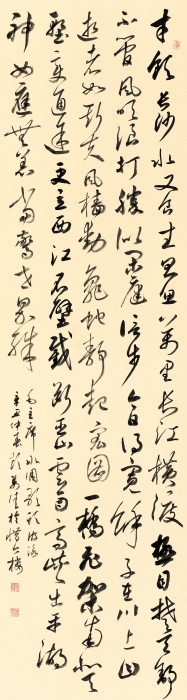 才飲長沙水又食武昌魚萬里長江橫渡極目楚天舒
不管風吹浪打勝似閑庭信步今日得寬餘子在川上曰
逝者如斯夫風檣動龜蛇靜起宏圖一橋飛架南北天
塹變通途更立西江石壁截斷巫山雲雨高峽出平湖
神女應無恙當驚世界殊
毛主席水調歌頭游泳
辛丑仲夏於